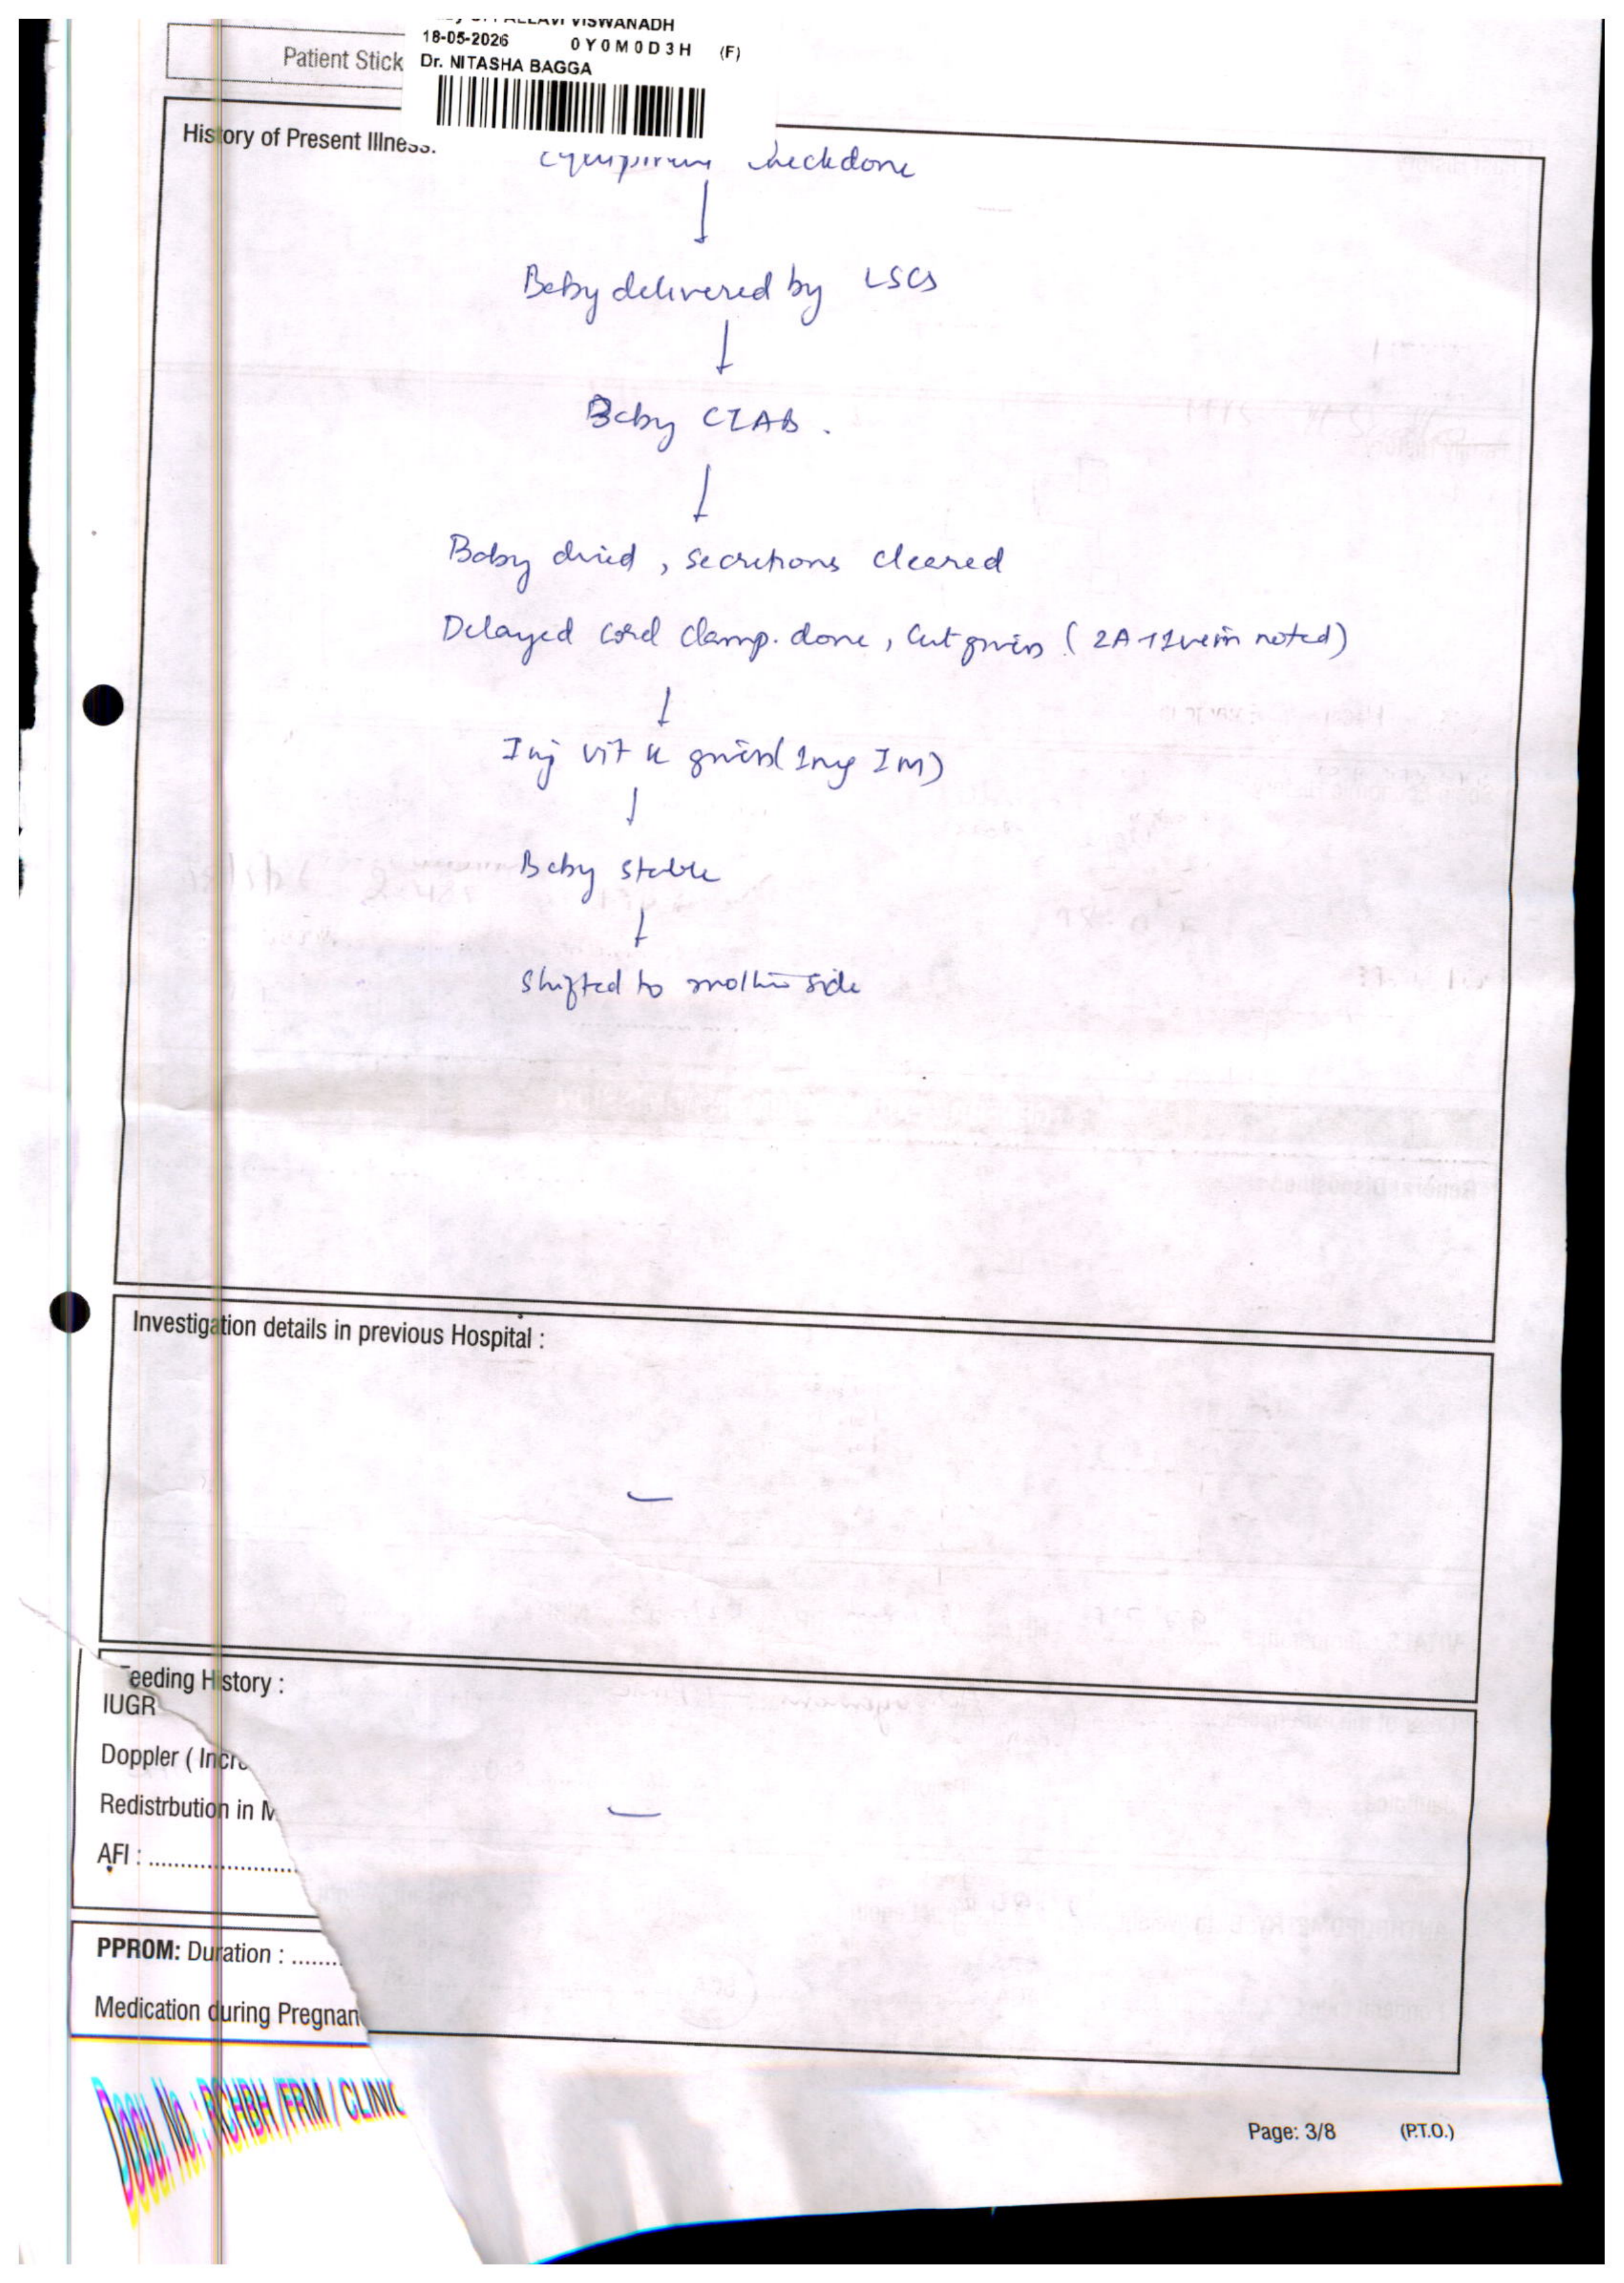 PALLAVI VISWANADH
18-05-2026 0Y0M0D3H (F)
Patient Stick
Dr. NITASHA BAGGA
History of Present Illness:
Equipment check done
↓
Baby delivered by LSCS
↓
Baby CIAB.
↓
Baby dried, secretions cleared
Delayed cord clamp. done, Cut given (2A+1vein noted)
↓
Inj vit K given (1mg IM)
↓
Baby stable
↓
Shifted to mother side
Investigation details in previous Hospital :
—
eeding History :
IUGR
Doppler ( Incre
Redistrbution in M
—
AFI : ........................
PPROM: Duration : ........
Medication during Pregnan
Docu. No. : RCHBH /FRM / CLINIC
Page: 3/8 (P.T.O.)